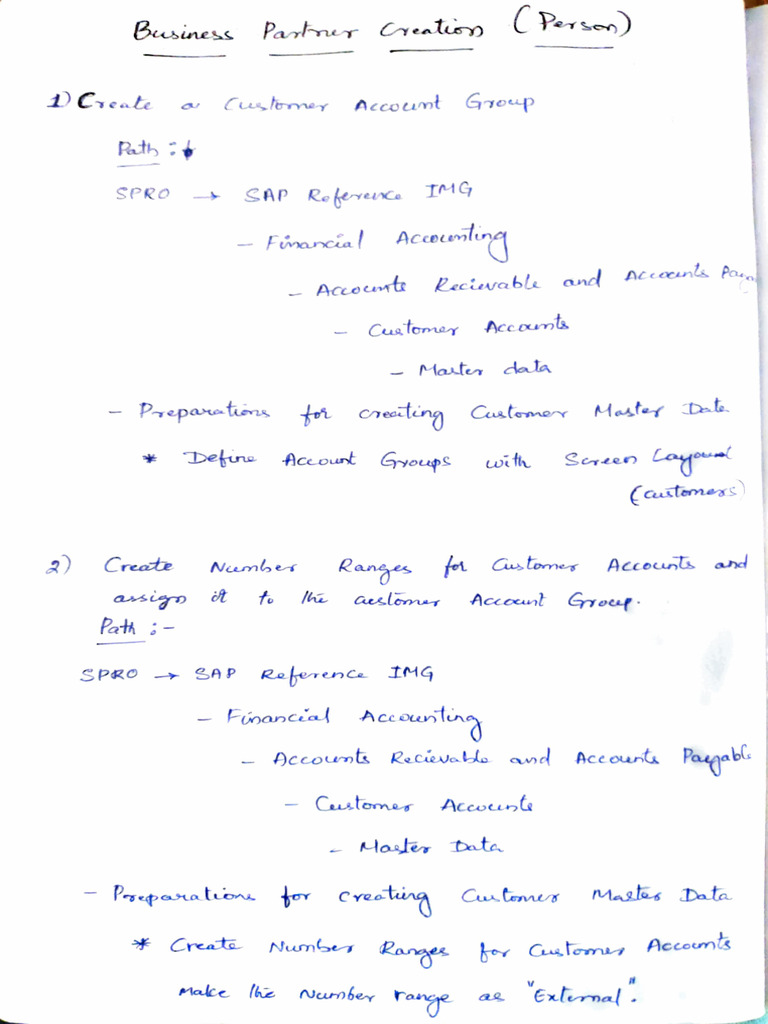 Business Partner Creation (Person)
1) Create a Customer Account Group
Path :-
SPRO → SAP Reference IMG
- Financial Accounting
- Accounts Recievable and Accounts
- Customer Accounts
- Master data
- Preparations for creating Customer Master Data
* Define Account Groups with Screen Layout
(customers)
2) Create Number Ranges for Customer Accounts and
assign it to the customer Account Group.
Path :-
SPRO → SAP Reference IMG
- Financial Accounting
- Accounts Recievable and Accounts Payable
- Customer Accounts
- Master Data
- Preparations for creating Customer Master Data
* Create Number Ranges for Customer Accounts
Make the Number range as "External".